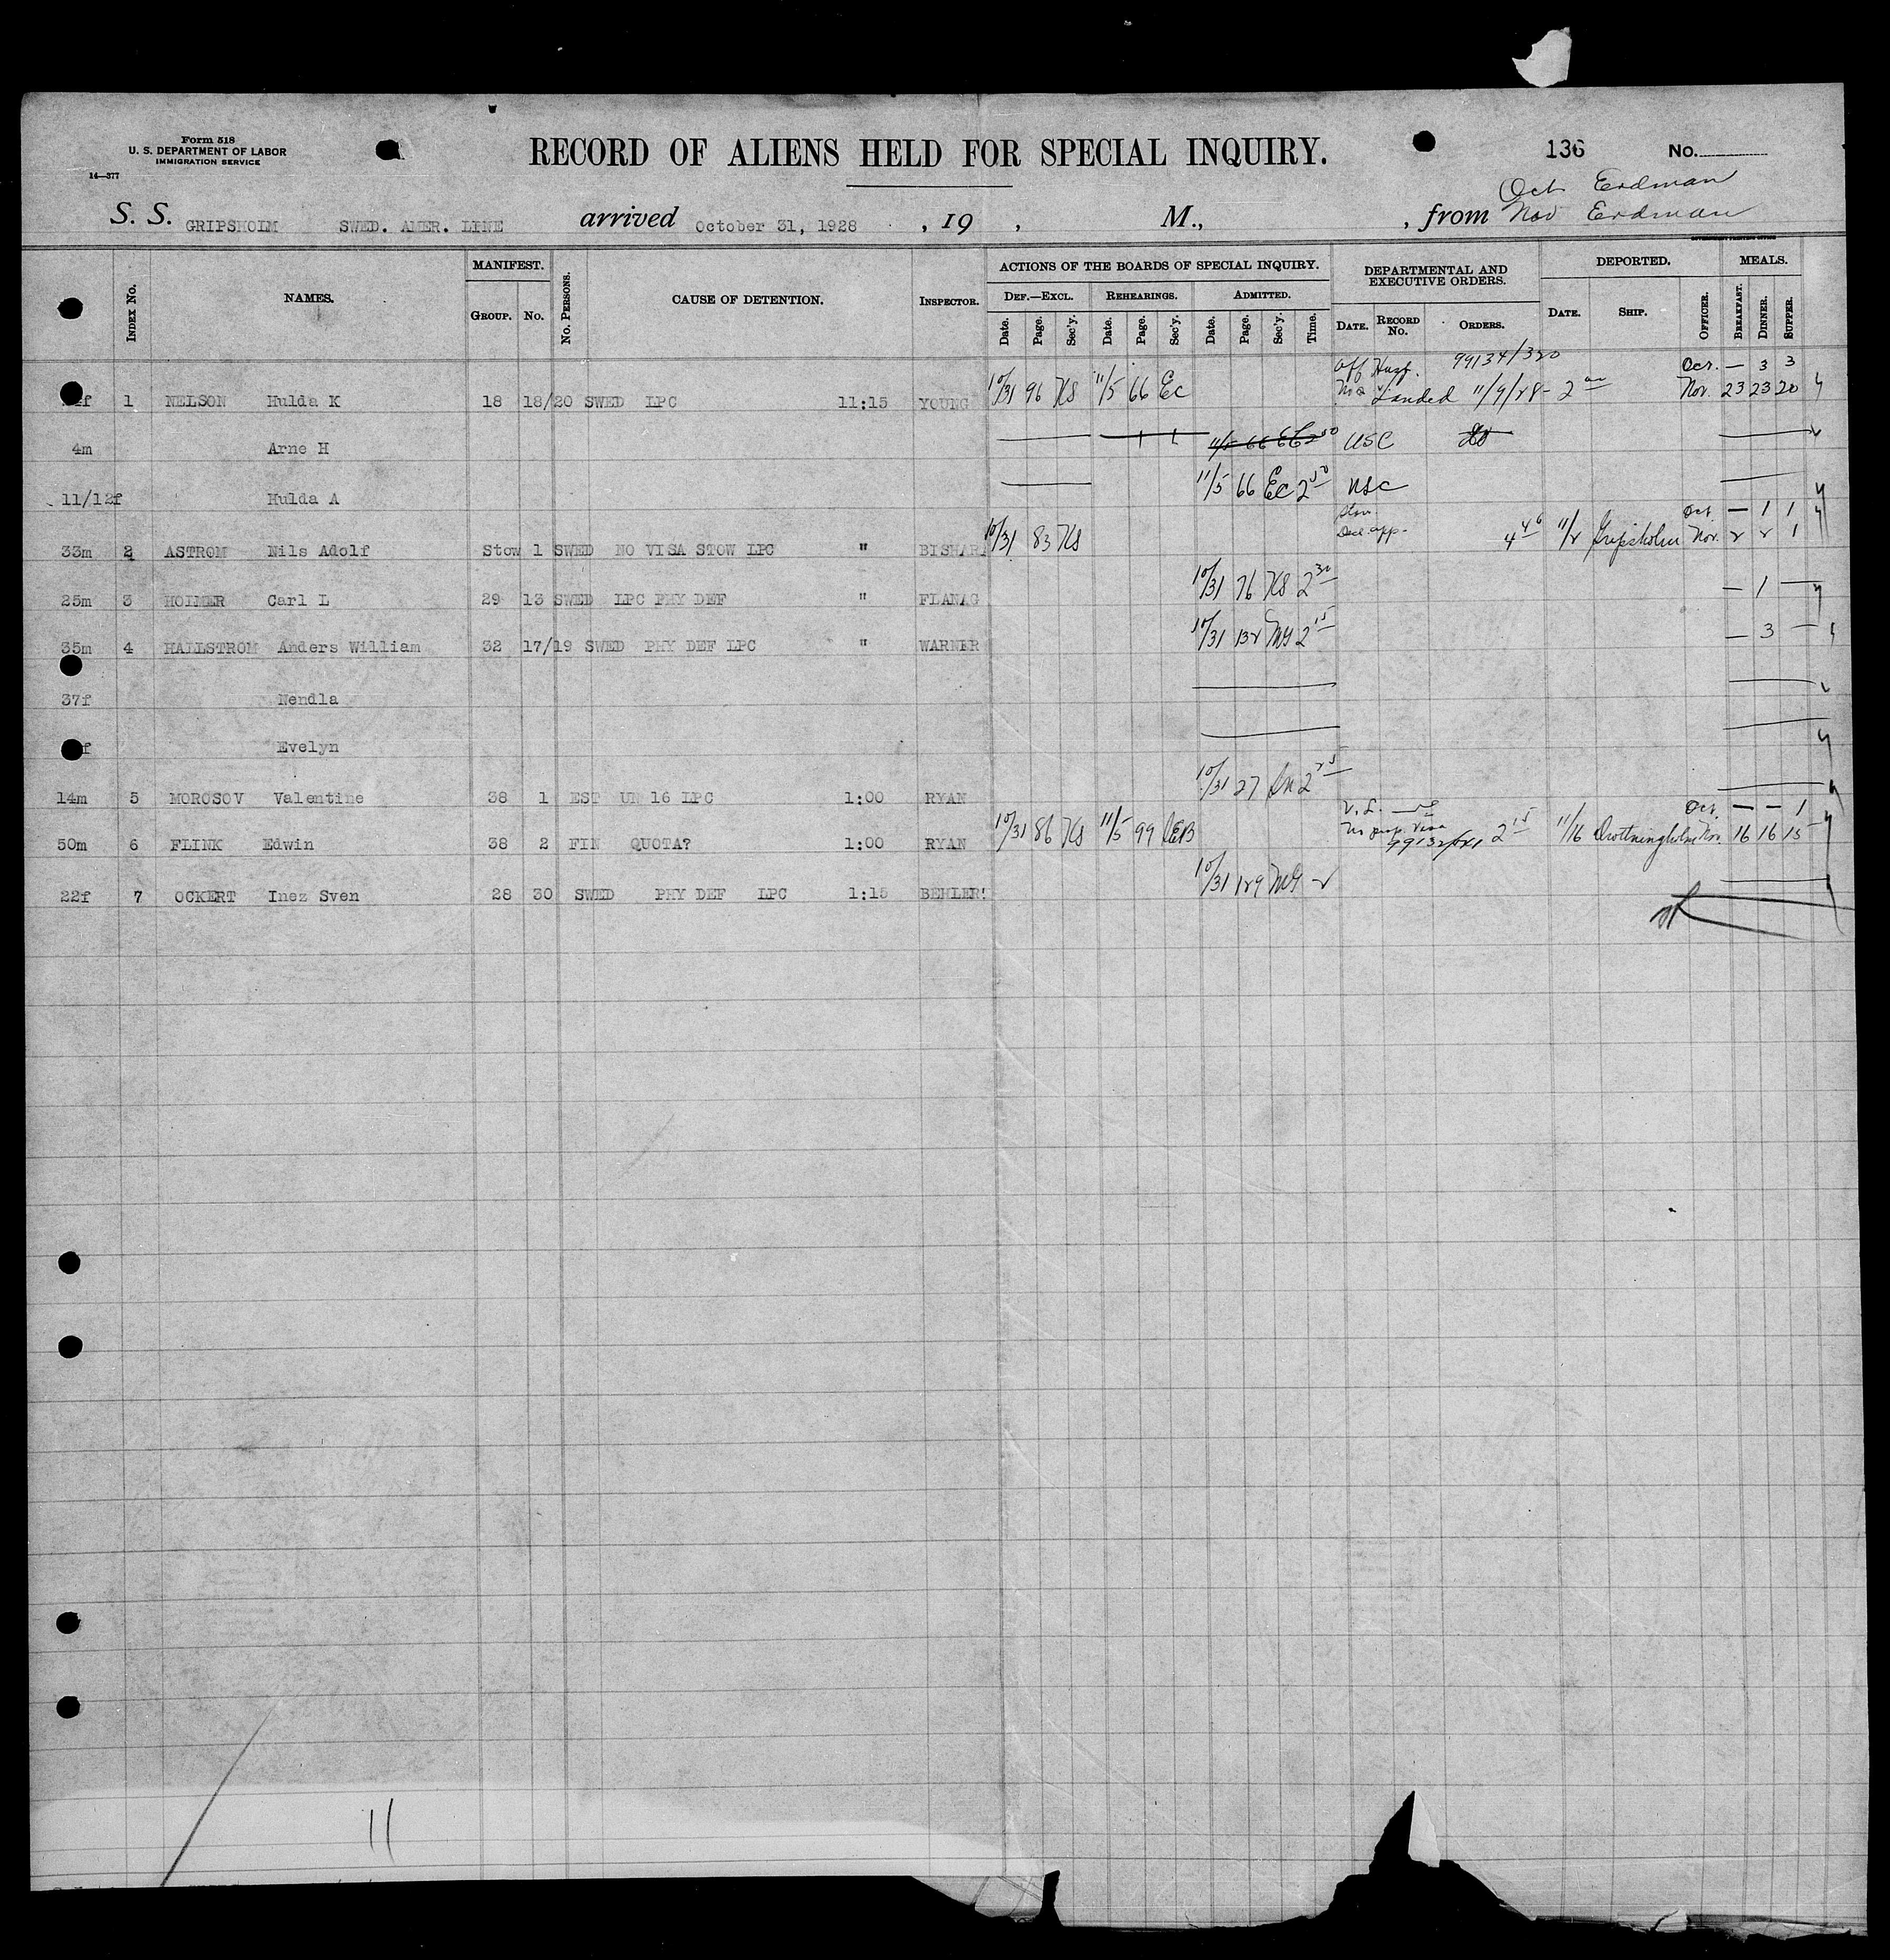 Form 518
U. S. DEPARTMENT OF LABOR
IMMIGRATION SERVICE
14—377
RECORD OF ALIENS HELD FOR SPECIAL INQUIRY.
136 No.
Oct Erdman
S. S. GRIPSHOLM SWED. AMER. LINE arrived October 31, 1928 , 19 , M., , from Nov Erdman
GOVERNMENT PRINTING OFFICE
INDEX No. NAMES. MANIFEST. GROUP. No. No. PERSONS. CAUSE OF DETENTION. INSPECTOR.
ACTIONS OF THE BOARDS OF SPECIAL INQUIRY.
DEF.—EXCL. REHEARINGS. ADMITTED.
Date. Page. Sec'y. Date. Page. Sec'y. Date. Page. Sec'y. Time.
DEPARTMENTAL AND EXECUTIVE ORDERS.
DATE. RECORD No. ORDERS.
DEPORTED.
DATE. SHIP. OFFICER.
MEALS.
BREAKFAST. DINNER. SUPPER.
99134/320 Oct. — 3 3
f 1 NELSON Hulda K 18 18/20 SWED LPC 11:15 YOUNG 10/31 96 KS 11/5 66 EC Landed 11/9/28 - 2 Nov. 23 23 20
4m Arne H 11/5 66 EC 2 50 USC
11/12f Hulda A 11/5 66 EC 2 50 NSC
Stow. Oct — 1 1
33m 2 ASTROM Nils Adolf Stow 1 SWED NO VISA STOW LPC " BISHARA 10/31 83 KS app. 4 46 11/2 Gripsholm Nov. 2 2 1
25m 3 HOLMER Carl L 29 13 SWED LPC PHY DEF " FLANAG 10/31 76 KS 2 30 — 1 —
35m 4 HALLSTROM Anders William 32 17/19 SWED PHY DEF LPC " WARNER 10/31 132 MG 2 15 — 3 —
37f Nendla
f Evelyn
14m 5 MOROSOV Valentine 38 1 EST UN 16 LPC 1:00 RYAN 10/31 27 2 25
Oct. — — 1
50m 6 FLINK Edwin 38 2 FIN QUOTA? 1:00 RYAN 10/31 86 KS 11/5 99 CEB visa 2 15 11/16 Drottningholm Nov. 16 16 15
22f 7 OCKERT Inez Sven 28 30 SWED PHY DEF LPC 1:15 BEHLER 10/31 129 MG 2
11